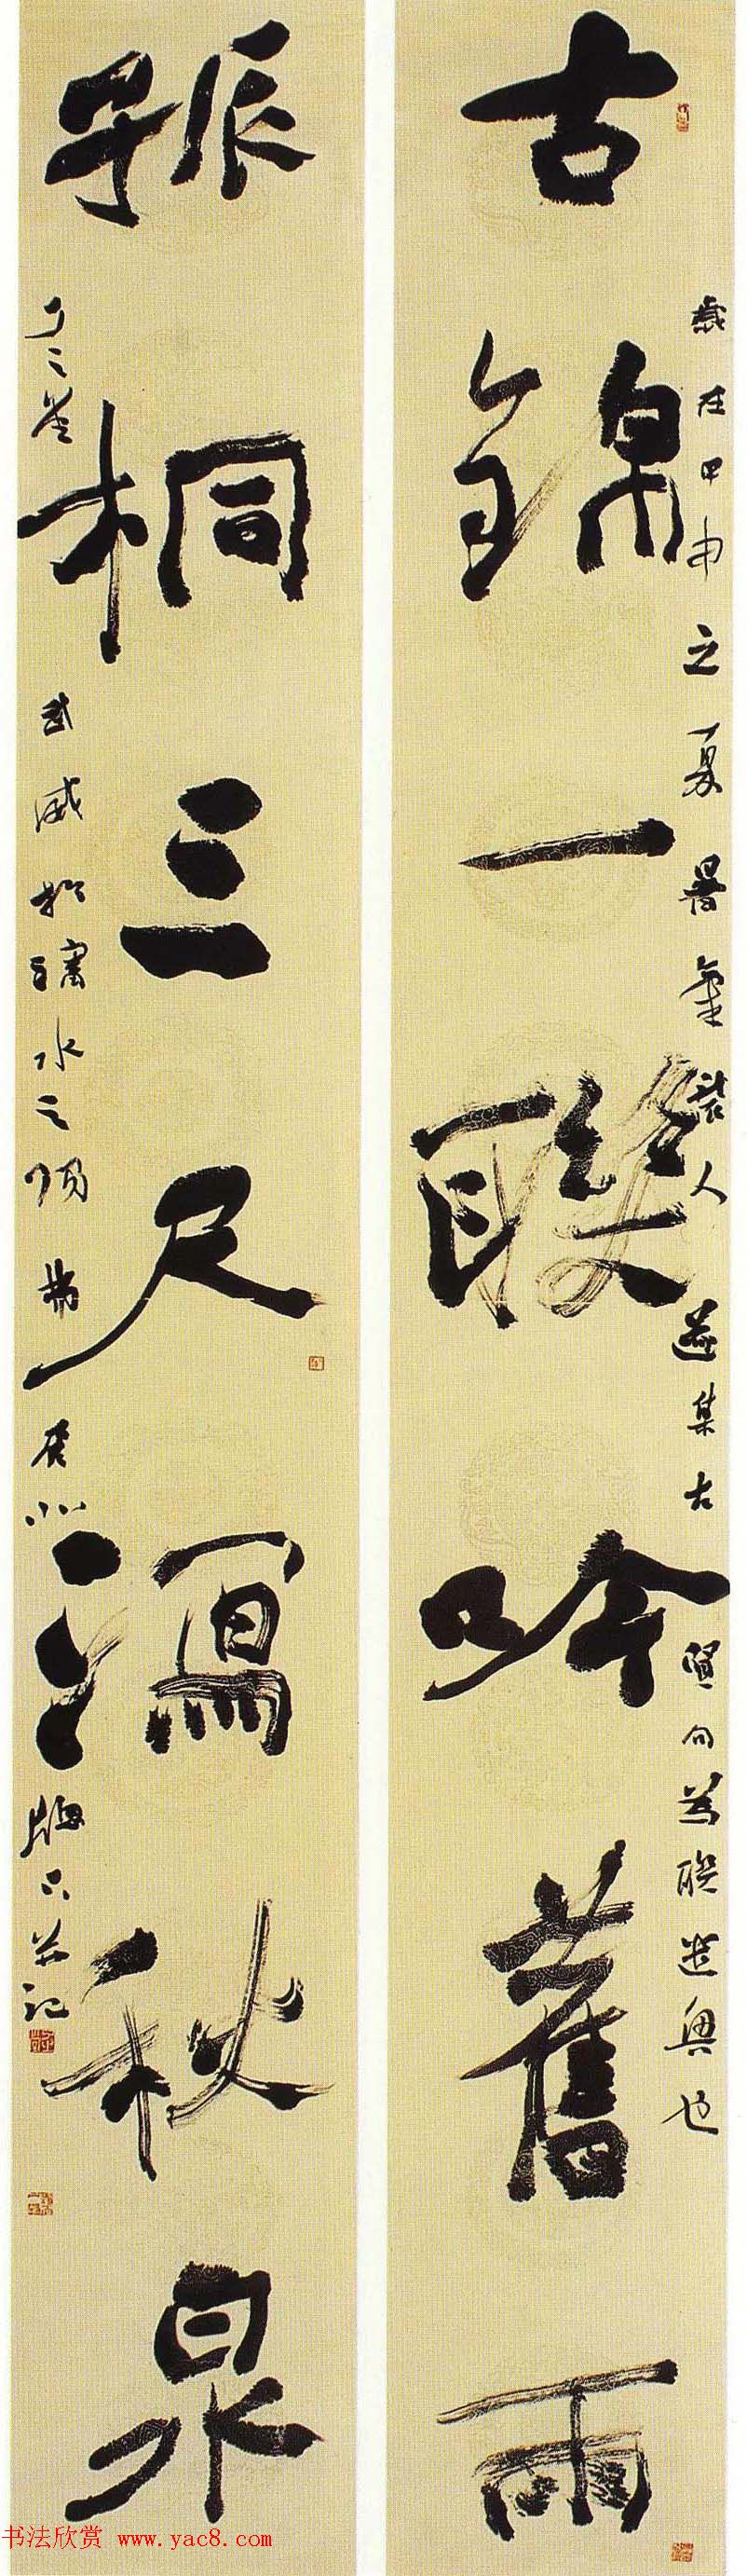 古錦一聯吟舊雨
歲在甲申之夏暑氣襲人遂集古賢句為聯遣興也
孤桐三尺瀉秋泉
武威於水之陽
居小牕下并記
书法欣赏 www.yac8.com